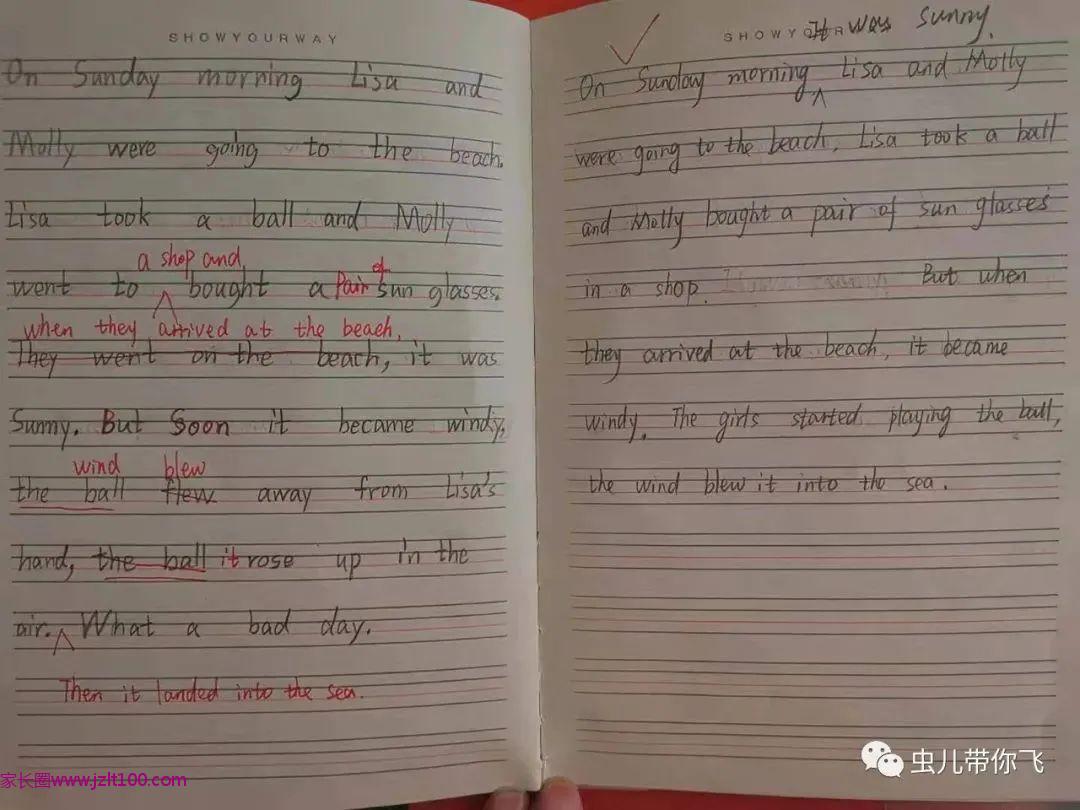 SHOWYOURWAY
On Sunday morning Lisa and
Molly were going to the beach.
Lisa took a ball and Molly
a shop and
went to bought a Pair of sun glasses.
when they arrived at the beach,
They went on the beach, it was
Sunny. But Soon it became windy,
wind blew
the ball flew away from Lisa's
hand, the ball it rose up in the
air. What a bad day.
Then it landed into the sea.
SHOWYOURWAY
It was sunny.
On Sunday morning Lisa and Molly
were going to the beach, Lisa took a ball
and Molly bought a pair of sun glasses
in a shop. But when
they arrived at the beach, it became
windy. The girls started playing the ball,
the wind blew it into the sea.
虫儿带你飞
家长圈www.jzlt100.com